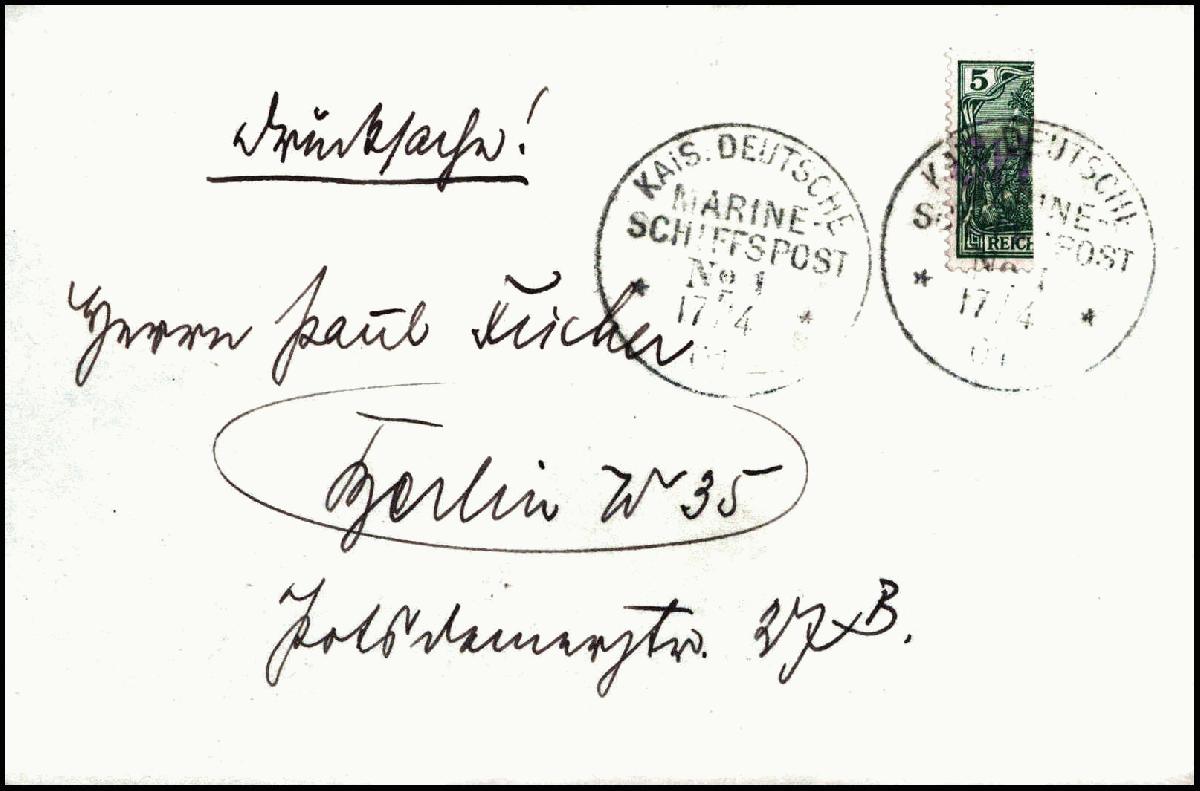 Drucksache!
5
REICH
KAIS. DEUTSCHE
MARINE-
SCHIFFSPOST
No 1
17/4
01
KAIS. DEUTSCHE
MARINE-
SCHIFFSPOST
No 1
17/4
01
Herrn Paul Fischer
Berlin W 35
Potsdamerstr. 27 B.